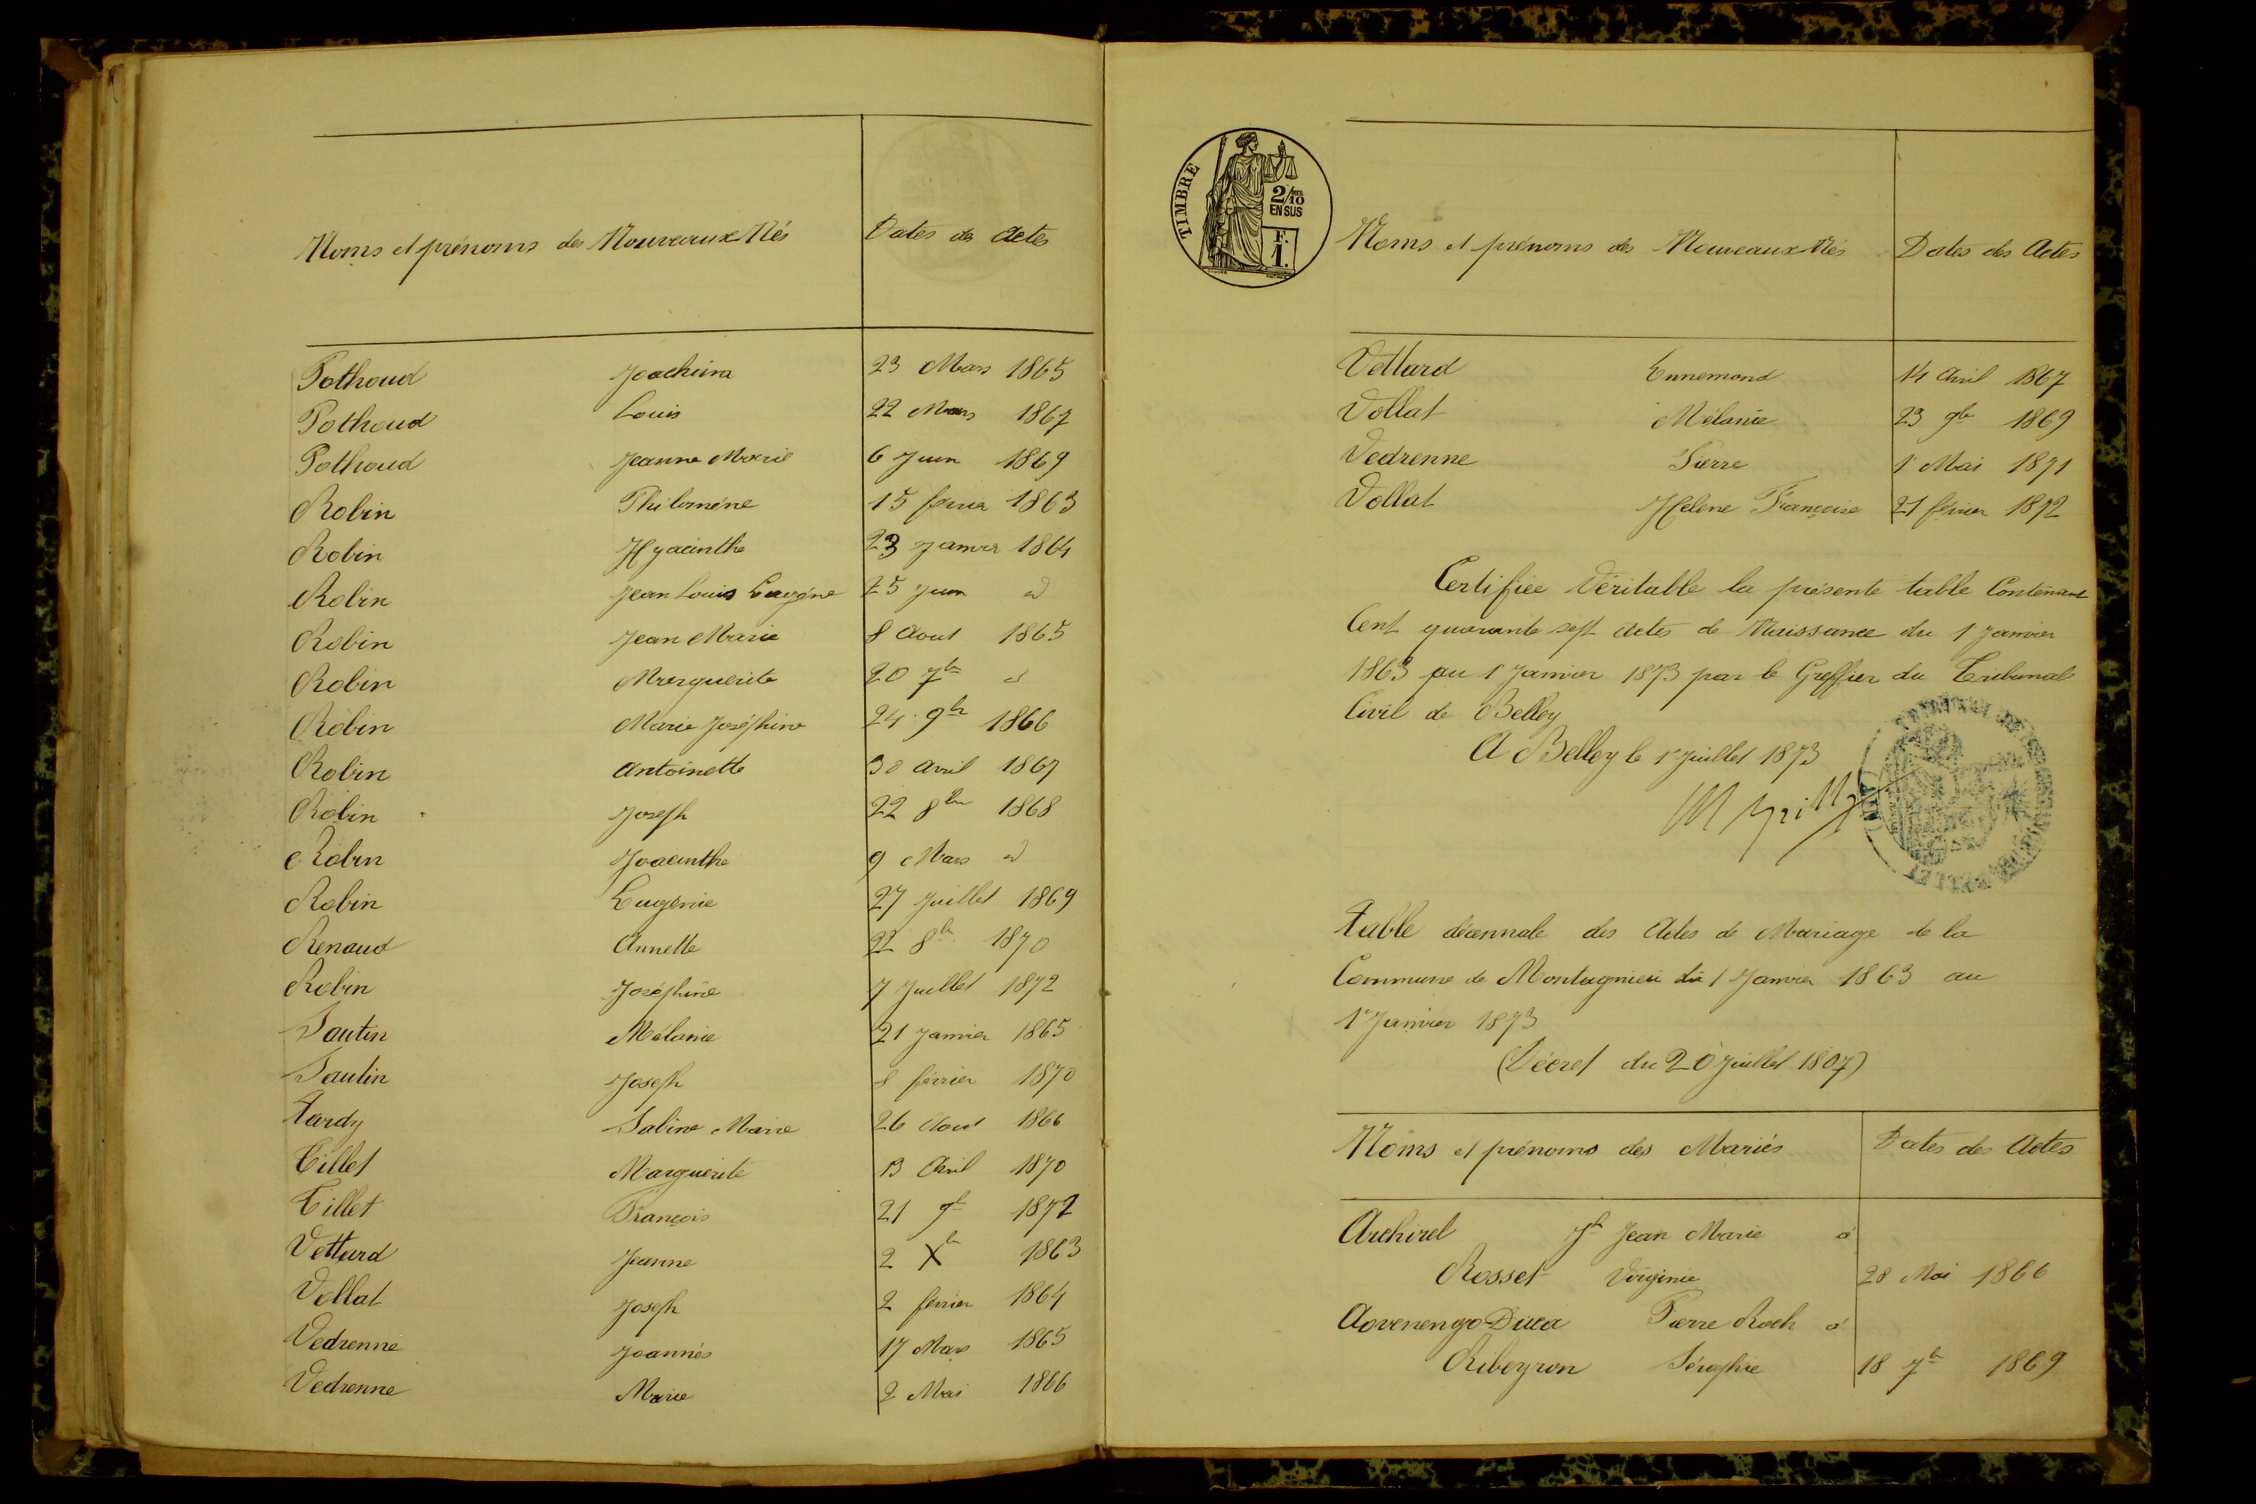 Noms et prénoms des Nouveaux Nés Dates des Actes
Pothoud Joachim 23 Mars 1865
Pothoud Louis 22 Mars 1867
Pothoud Jeanne Marie 6 Juin 1869
Robin Philomène 15 février 1863
Robin Hyacinthe 23 Janvier 1864
Robin Jean Louis Eugène 25 Juin d
Robin Jean Marie 8 Aout 1865
Robin Marguerite 20 7bre d
Robin Marie Joséphine 24 9bre 1866
Robin Antoinette 30 Avril 1867
Robin Joseph 22 8bre 1868
Robin Joacinthe 9 Mars d
Robin Eugénie 27 Juillet 1869
Renaud Annette 22 8bre 1870
Robin Joséphine 7 Juillet 1872
Sautin Mélanie 21 Janvier 1865
Sautin Joseph 8 février 1870
Tardy Sabine Marie 26 Aout 1866
Tillet Marguerite 13 Avril 1870
Tillet François 21 1872
Vettard Jeanne 2 Xbre 1863
Vollat Joseph 2 février 1864
Vedrenne Joannès 17 Mars 1865
Vedrenne Marie 2 Mai 1866
TIMBRE
2/10
EN SUS
F.
1.
Noms et prénoms des Nouveaux Nés Dates des Actes
Vettard Ennemond 14 Avril 1867
Vollat Mélanie 23 9bre 1869
Vedrenne Pierre 1er Mai 1871
Vollat Helene Françoise 21 février 1872
Certifiée Véritable la présente table Contenant
Cent quarante sept actes de Naissance du 1 Janvier
1863 au 1 Janvier 1873 par le Greffier du Tribunal
Civil de Belley
A Belley le 1er Juillet 1873
Table décennale des Actes de Mariage de la
Commune de Montagnieu du 1 Janvier 1863 au
1er Janvier 1873
(Décret du 20 Juillet 1807)
Noms et prénoms des Mariés Dates des Actes
Archirel Jh Jean Marie à
Rosset Virginie 28 Mai 1866
Aovenengo Duca Pierre Roch à
Ribeyron Séraphie 18 7bre 1869